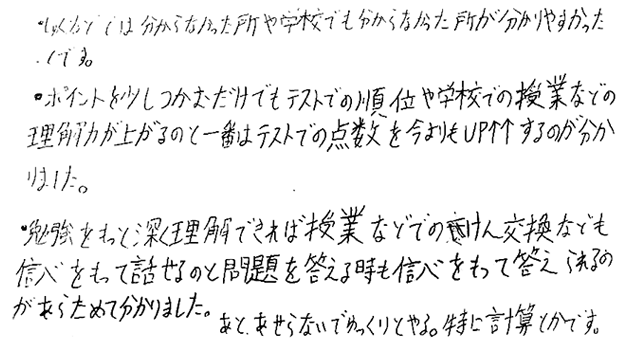 ・しゅくだいでは分からなかった所や学校でも分からなかった所が分かりやすかった
です。
・ポイントを少しつかむだけでもテストでの順位や学校での授業などの
理解力が上がるのと一番はテストでの点数を今よりもUP↑↑するのが分か
りました。
・勉強をもっと深く理解できれば授業などでの意けん交換なども
信心をもって話せるのと問題を答える時も信心をもって答えられるの
があらためて分かりました。
あと、あせらないでゆっくりとやる。特に計算とかです。